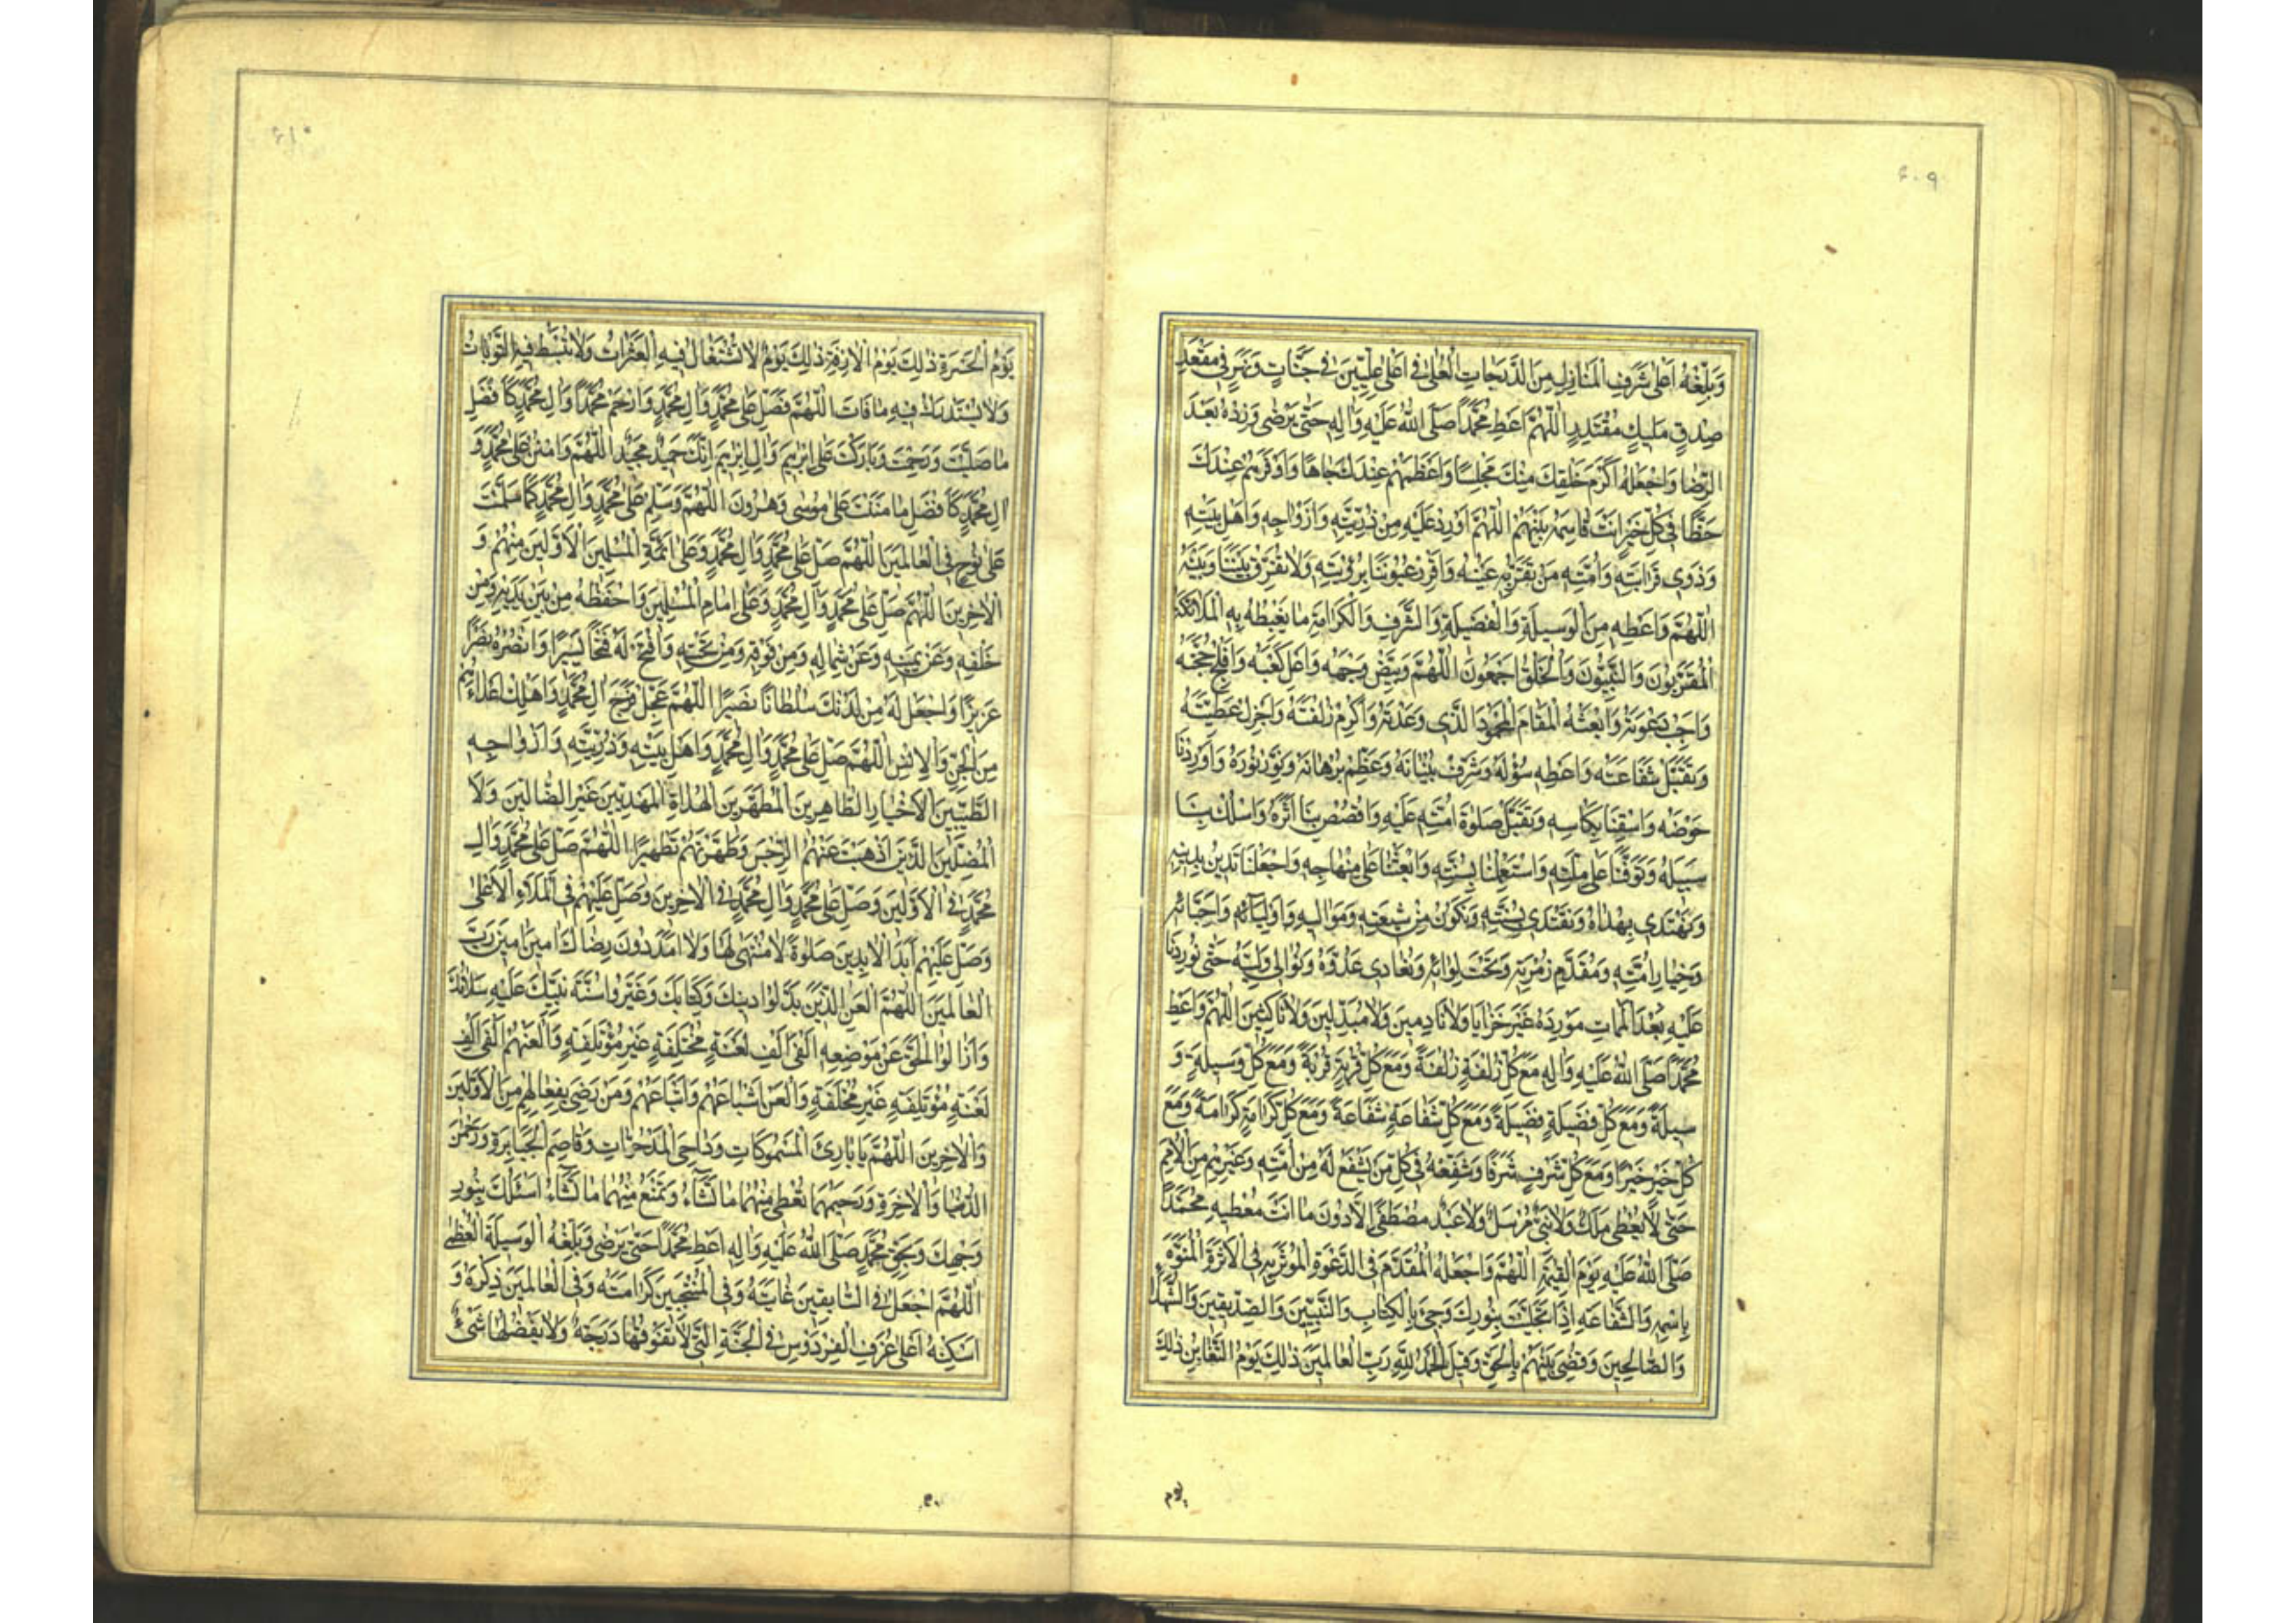 ۶۰۹
وَبَلِّغْهُ اَعْلٰى شَرَفِ الْمَنَازِلِ مِنَ الدَّرَجَاتِ الْعُلٰى فِى اَعْلٰى عِلِّيّٖينَ فِى جَنَّاتٍ وَنَهَرٍ فِى مَقْعَدِ
صِدْقٍ عِنْدَ مَلِيكٍ مُقْتَدِرٍ اَللّٰهُمَّ اَعْطِ مُحَمَّدًا صَلَّى اللّٰهُ عَلَيْهِ وَاٰلِهِ حَتّٰى يَرْضٰى وَزِدْهُ بَعْدَ
الرِّضَا وَاجْعَلْهُ اَكْرَمَ خَلْقِكَ مِنْكَ مَجْلِسًا وَاَعْظَمَهُمْ عِنْدَكَ جَاهًا وَاَوْفَرَهُمْ عِنْدَكَ
حَظًّا فِى كُلِّ خَيْرٍ اَنْتَ قَاسِمُهُ بَيْنَهُمْ اَللّٰهُمَّ اَوْرِدْ عَلَيْهِ مِنْ ذُرِّيَّتِهِ وَاَزْوَاجِهِ وَاَهْلِ بَيْتِهِ
وَذَوِى قَرَابَتِهِ وَاُمَّتِهِ مَنْ تَقَرُّ بِهِ عَيْنُهُ وَاَقْرِرْ عُيُونَنَا بِرُؤْيَتِهِ وَلَا تُفَرِّقْ بَيْنَنَا وَبَيْنَهُ
اَللّٰهُمَّ وَاَعْطِهِ مِنَ الْوَسِيلَةِ وَالْفَضِيلَةِ وَالشَّرَفِ وَالْكَرَامَةِ مَا يَغْبِطُهُ بِهِ الْمَلَائِكَةُ
الْمُقَرَّبُونَ وَالنَّبِيُّونَ وَالْخَلْقُ اَجْمَعُونَ اَللّٰهُمَّ وَبَيِّضْ وَجْهَهُ وَاَعْلِ كَعْبَهُ وَاَفْلِجْ حُجَّتَهُ
وَاَجِبْ دَعْوَتَهُ وَابْعَثْهُ الْمَقَامَ الْمَحْمُودَ الَّذِى وَعَدْتَهُ وَاَكْرِمْ زُلْفَتَهُ وَاَجْزِلْ عَطِيَّتَهُ
وَتَقَبَّلْ شَفَاعَتَهُ وَاَعْطِهِ سُؤْلَهُ وَشَرِّفْ بُنْيَانَهُ وَعَظِّمْ بُرْهَانَهُ وَنَوِّرْ نُورَهُ وَاَوْرِدْنَا
حَوْضَهُ وَاسْقِنَا بِكَاْسِهِ وَتَقَبَّلْ صَلٰوةَ اُمَّتِهِ عَلَيْهِ وَاقْصُصْ بِنَا اَثَرَهُ وَاسْلُكْ بِنَا
سَبِيلَهُ وَتَوَفَّنَا عَلٰى مِلَّتِهِ وَاسْتَعْمِلْنَا بِسُنَّتِهِ وَابْعَثْنَا عَلٰى مِنْهَاجِهِ وَاجْعَلْنَا نَدِينُ بِدِينِهِ
وَنَهْتَدِى بِهُدَاهُ وَنَقْتَدِى بِسُنَّتِهِ وَنَكُونُ مِنْ شِيعَتِهِ وَمَوَالِيهِ وَاَوْلِيَائِهِ وَاَحِبَّائِهِ
وَخِيَارِ اُمَّتِهِ وَمُقَدَّمِ زُمْرَتِهِ وَتَحْتَ لِوَائِهِ وَنُعَادِى عَدُوَّهُ وَنُوَالِى وَلِيَّهُ حَتّٰى تُورِدَنَا
عَلَيْهِ بَعْدَ الْمَمَاتِ مَوْرِدَهُ غَيْرَ خَزَايَا وَلَا نَادِمِينَ وَلَا مُبَدِّلِينَ وَلَا نَاكِثِينَ اَللّٰهُمَّ وَاَعْطِ
مُحَمَّدًا صَلَّى اللّٰهُ عَلَيْهِ وَاٰلِهِ مَعَ كُلِّ زُلْفَةٍ زُلْفَةً وَمَعَ كُلِّ قُرْبَةٍ قُرْبَةً وَمَعَ كُلِّ وَسِيلَةٍ وَ
سِيلَةً وَمَعَ كُلِّ فَضِيلَةٍ فَضِيلَةً وَمَعَ كُلِّ شَفَاعَةٍ شَفَاعَةً وَمَعَ كُلِّ كَرَامَةٍ كَرَامَةً وَمَعَ
كُلِّ خَيْرٍ خَيْرًا وَمَعَ كُلِّ شَرَفٍ شَرَفًا وَشَفِّعْهُ فِى كُلِّ مَنْ يَشْفَعُ لَهُ مِنْ اُمَّتِهِ وَغَيْرِهِمْ مِنَ الْاُمَمِ
حَتّٰى لَا يُعْطٰى مَلَكٌ وَلَا نَبِىٌّ مُرْسَلٌ وَلَا عَبْدٌ مُصْطَفًى اِلَّا دُونَ مَا اَنْتَ مُعْطِيهِ مُحَمَّدًا
صَلَّى اللّٰهُ عَلَيْهِ يَوْمَ الْقِيٰمَةِ اَللّٰهُمَّ وَاجْعَلْهُ الْمُقَدَّمَ فِى الدَّعْوَةِ الْمُؤْثَرَ بِهِ فِى الْاَثَرَةِ الْمُنَوَّهَ
بِاسْمِهِ وَالشَّفَاعَةِ اِذَا تَجَلَّيْتَ بِنُورِكَ وَجِئَ بِالْكِتَابِ وَالنَّبِيِّينَ وَالصِّدِّيقِينَ وَالشُّهَدَاءِ
وَالصَّالِحِينَ وَقُضِىَ بَيْنَهُمْ بِالْحَقِّ وَقِيلَ الْحَمْدُ لِلّٰهِ رَبِّ الْعَالَمِينَ ذٰلِكَ يَوْمُ التَّغَابُنِ ذٰلِكَ
يوم
۶۱۰
يَوْمُ الْحَسْرَةِ ذٰلِكَ يَوْمُ الْاٰزِفَةِ ذٰلِكَ يَوْمٌ لَا تُسْتَقَالُ فِيهِ الْعَثَرَاتُ وَلَا تُبْسَطُ فِيهِ التَّوْبَاتُ
وَلَا يُسْتَدْرَكُ فِيهِ مَا فَاتَ اَللّٰهُمَّ فَصَلِّ عَلٰى مُحَمَّدٍ وَاٰلِ مُحَمَّدٍ وَارْحَمْ مُحَمَّدًا وَاٰلَ مُحَمَّدٍ كَاَفْضَلِ
مَا صَلَّيْتَ وَرَحِمْتَ وَبَارَكْتَ عَلٰى اِبْرٰهِيمَ وَاٰلِ اِبْرٰهِيمَ اِنَّكَ حَمِيدٌ مَجِيدٌ اَللّٰهُمَّ وَامْنُنْ عَلٰى مُحَمَّدٍ وَ
اٰلِ مُحَمَّدٍ كَاَفْضَلِ مَا مَنَنْتَ عَلٰى مُوسٰى وَهٰرُونَ اَللّٰهُمَّ وَسَلِّمْ عَلٰى مُحَمَّدٍ وَاٰلِ مُحَمَّدٍ كَمَا سَلَّمْتَ
عَلٰى نُوحٍ فِى الْعَالَمِينَ اَللّٰهُمَّ صَلِّ عَلٰى مُحَمَّدٍ وَاٰلِ مُحَمَّدٍ وَعَلٰى اَئِمَّةِ الْمُسْلِمِينَ الْاَوَّلِينَ مِنْهُمْ وَ
الْاٰخِرِينَ اَللّٰهُمَّ صَلِّ عَلٰى مُحَمَّدٍ وَاٰلِ مُحَمَّدٍ وَعَلٰى اِمَامِ الْمُسْلِمِينَ وَاحْفَظْهُ مِنْ بَيْنِ يَدَيْهِ وَمِنْ
خَلْفِهِ وَعَنْ يَمِينِهِ وَعَنْ شِمَالِهِ وَمِنْ فَوْقِهِ وَمِنْ تَحْتِهِ وَافْتَحْ لَهُ فَتْحًا يَسِيرًا وَانْصُرْهُ نَصْرًا
عَزِيزًا وَاجْعَلْ لَهُ مِنْ لَدُنْكَ سُلْطَانًا نَصِيرًا اَللّٰهُمَّ عَجِّلْ فَرَجَ اٰلِ مُحَمَّدٍ وَاَهْلِكْ اَعْدَاءَهُمْ
مِنَ الْجِنِّ وَالْاِنْسِ اَللّٰهُمَّ صَلِّ عَلٰى مُحَمَّدٍ وَاٰلِ مُحَمَّدٍ وَاَهْلِ بَيْتِهِ وَذُرِّيَّتِهِ وَاَزْوَاجِهِ
الطَّيِّبِينَ الْاَخْيَارِ الطَّاهِرِينَ الْمُطَهَّرِينَ الْهُدَاةِ الْمَهْدِيِّينَ غَيْرِ الضَّالِّينَ وَلَا
الْمُضِلِّينَ الَّذِينَ اَذْهَبْتَ عَنْهُمُ الرِّجْسَ وَطَهَّرْتَهُمْ تَطْهِيرًا اَللّٰهُمَّ صَلِّ عَلٰى مُحَمَّدٍ وَاٰلِ
مُحَمَّدٍ فِى الْاَوَّلِينَ وَصَلِّ عَلٰى مُحَمَّدٍ وَاٰلِ مُحَمَّدٍ فِى الْاٰخِرِينَ وَصَلِّ عَلَيْهِمْ فِى الْمَلَاءِ الْاَعْلٰى
وَصَلِّ عَلَيْهِمْ اَبَدَ الْاٰبِدِينَ صَلٰوةً لَا مُنْتَهٰى لَهَا وَلَا اَمَدَ دُونَ رِضَاكَ اٰمِينَ اٰمِينَ رَبَّ
الْعَالَمِينَ اَللّٰهُمَّ الْعَنِ الَّذِينَ بَدَّلُوا دِينَكَ وَكِتَابَكَ وَغَيَّرُوا سُنَّةَ نَبِيِّكَ عَلَيْهِ سَلَامُكَ
وَاَزَالُوا الْحَقَّ عَنْ مَوْضِعِهِ اَلْفَىْ اَلْفِ لَعْنَةٍ مُخْتَلِفَةٍ غَيْرِ مُؤْتَلِفَةٍ وَالْعَنْهُمْ اَلْفَىْ اَلْفِ
لَعْنَةٍ مُؤْتَلِفَةٍ غَيْرِ مُخْتَلِفَةٍ وَالْعَنْ اَشْيَاعَهُمْ وَاَتْبَاعَهُمْ وَمَنْ رَضِىَ بِفِعَالِهِمْ مِنَ الْاَوَّلِينَ
وَالْاٰخِرِينَ اَللّٰهُمَّ يَا بَارِئَ الْمَسْمُوكَاتِ وَدَاحِىَ الْمَدْحُوَّاتِ وَقَاصِمَ الْجَبَابِرَةِ وَرَحْمٰنَ
الدُّنْيَا وَالْاٰخِرَةِ وَرَحِيمَهُمَا تُعْطِى مِنْهُمَا مَا تَشَاءُ وَتَمْنَعُ مِنْهُمَا مَا تَشَاءُ اَسْئَلُكَ بِنُورِ
وَجْهِكَ وَبِحَقِّ مُحَمَّدٍ صَلَّى اللّٰهُ عَلَيْهِ وَاٰلِهِ اَعْطِ مُحَمَّدًا حَتّٰى يَرْضٰى وَبَلِّغْهُ الْوَسِيلَةَ الْعُظْمٰى
اَللّٰهُمَّ اجْعَلْ فِى السَّابِقِينَ غَايَتَهُ وَفِى الْمُنْتَجَبِينَ كَرَامَتَهُ وَفِى الْعَالَمِينَ ذِكْرَهُ وَ
اَسْكِنْهُ اَعْلٰى غُرَفِ الْفِرْدَوْسِ فِى الْجَنَّةِ الَّتِى لَا تَفُوقُهَا دَرَجَةٌ وَلَا يَفْضُلُهَا شَىْءٌ